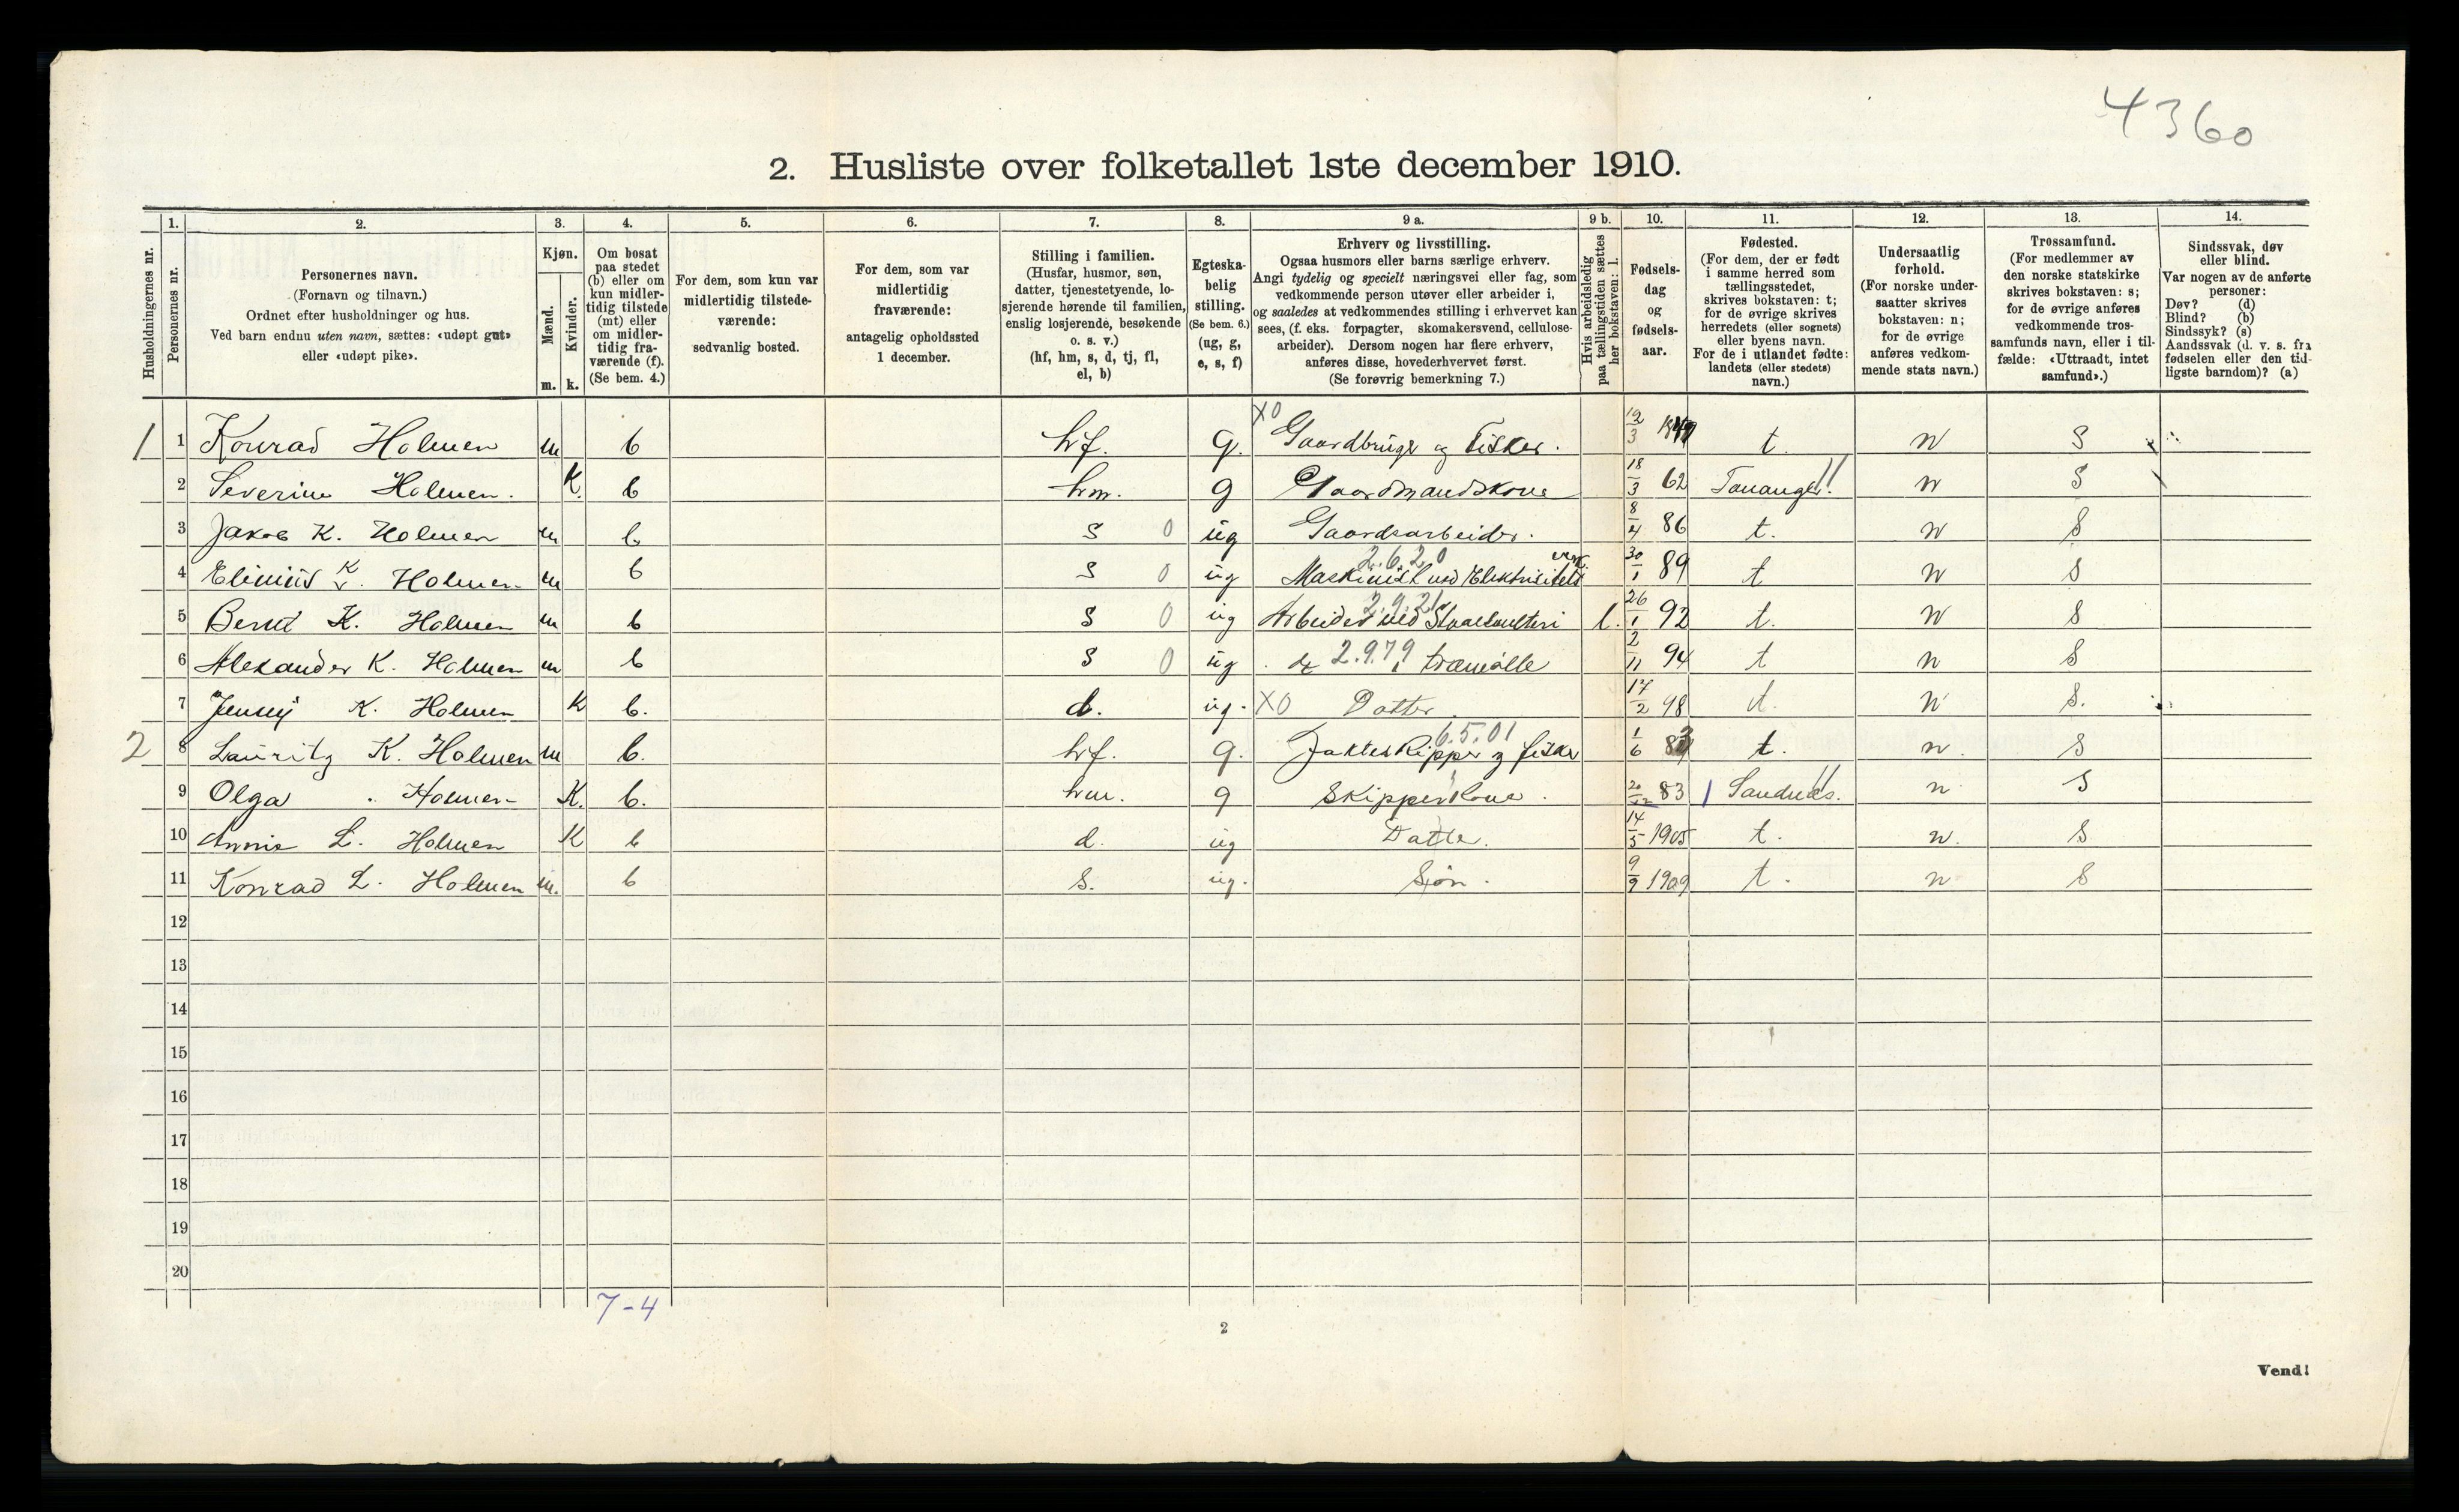 4360
2. Husliste over folketallet 1ste december 1910.
Husholdningernes nr.
1.
Personernes nr.
2.
Personernes navn.
(Fornavn og tilnavn.)
Ordnet efter husholdninger og hus.
Ved barn endnu uten navn, sættes: «udøpt gut»
eller «udøpt pike».
3.
Kjøn.
Mænd.
Kvinder.
m. k.
4.
Om bosat
paa stedet
(b) eller om
kun midler-
tidig tilstede
(mt) eller
om midler-
tidig fra-
værende (f).
(Se bem. 4.)
5.
For dem, som kun var
midlertidig tilstede-
værende:
sedvanlig bosted.
6.
For dem, som var
midlertidig
fraværende:
antagelig opholdssted
1 december.
7.
Stilling i familien.
(Husfar, husmor, søn,
datter, tjenestetyende, lo-
sjerende hørende til familien,
enslig losjerende, besøkende
o. s. v.)
(hf, hm, s, d, tj, fl,
el, b)
8.
Egteska-
belig
stilling.
(Se bem. 6.)
(ug, g,
e, s, f)
9 a.
Erhverv og livsstilling.
Ogsaa husmors eller barns særlige erhverv.
Angi tydelig og specielt næringsvei eller fag, som
vedkommende person utøver eller arbeider i,
og saaledes at vedkommendes stilling i erhvervet kan
sees, (f. eks. forpagter, skomakersvend, cellulose-
arbeider). Dersom nogen har flere erhverv,
anføres disse, hovederhvervet først.
(Se forøvrig bemerkning 7.)
9 b.
Hvis arbeidsledig
paa tællingstiden sættes
her bokstaven: l.
10.
Fødsels-
dag
og
fødsels-
aar.
11.
Fødested.
(For dem, der er født
i samme herred som
tællingsstedet,
skrives bokstaven: t;
for de øvrige skrives
herredets (eller sognets)
eller byens navn.
For de i utlandet fødte:
landets (eller stedets)
navn.)
12.
Undersaatlig
forhold.
(For norske under-
saatter skrives
bokstaven: n;
for de øvrige
anføres vedkom-
mende stats navn.)
13.
Trossamfund.
(For medlemmer av
den norske statskirke
skrives bokstaven: s;
for de øvrige anføres
vedkommende tros-
samfunds navn, eller i til-
fælde: «Uttraadt, intet
samfund».)
14.
Sindssvak, døv
eller blind.
Var nogen av de anførte
personer:
Døv? (d)
Blind? (b)
Sindssyk? (s)
Aandssvak (d. v. s. fra
fødselen eller den tid-
ligste barndom)? (a)
1 1 Konrad Holmen m b hf. g. X0 Gaardbruger og Fisker. 3 t. n S
2 Severine Holmen. K. b hm. g Gaardmandskone 18/3 62 Tananger. n S
3 Jakob K. Holmen m b. S 0 ug Gaardsarbeider. 8/4 86 t. n S
4 K. Holmen m b S 0 ug 2.6.20 Maskinist ved Elektrisitets verk. 30/1 89 t n S
5 Bernt K. Holmen m b S 0 ug 2.9.21 Arbeider ved l. 26/1 92 t. n S
6 Alexander K. Holmen m b S 0 ug do 2.9.79 i træmølle 2/11 94 t n S
7 Jenny K. Holmen K b. d. ug. X0 Datter 17/2 98 t. n S.
2 8 Lauritz K. Holmen m b. hf. g. 6.5.01 Jakteskipper og fisker 1/6 83 t. n. S
9 Olga Holmen K. b. hm. g Skipperkone. 83 Sandnes. n S
10 Annie L. Holmen K b d. ug Datter. 14/5 1905 t. n. S
11 Konrad L. Holmen m. b S. ug. Søn. 9/9 1909 t. n S
12
13
14
15
16
17
18
19
20
7-4
2
Vend!